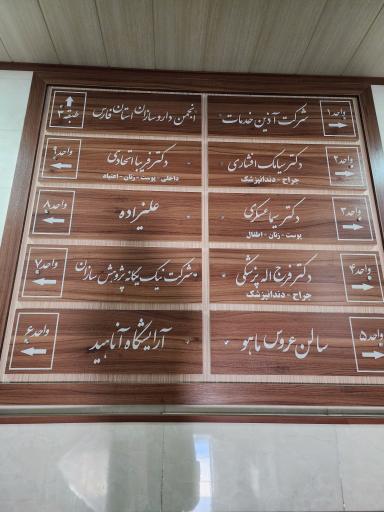 واحد ۱
شرکت آذین خدمات
واحد ۲
دکتر سیامک افشاری
جراح - دندانپزشک
واحد ۳
دکتر سیما عسکری
پوست - زنان - اطفال
واحد ۴
دکتر فرج اله پزشکی
جراح - دندانپزشک
واحد ۵
سالن عروس ماهو
طبقه ۳
انجمن داروسازان استان فارس
واحد ۹
دکتر فریبا اتحادی
داخلی - پوست - زنان - اعتیاد
واحد ۸
علیزاده
واحد ۷
شرکت نیک یگانه پژوهش سازان
واحد ۶
آرایشگاه آناهید